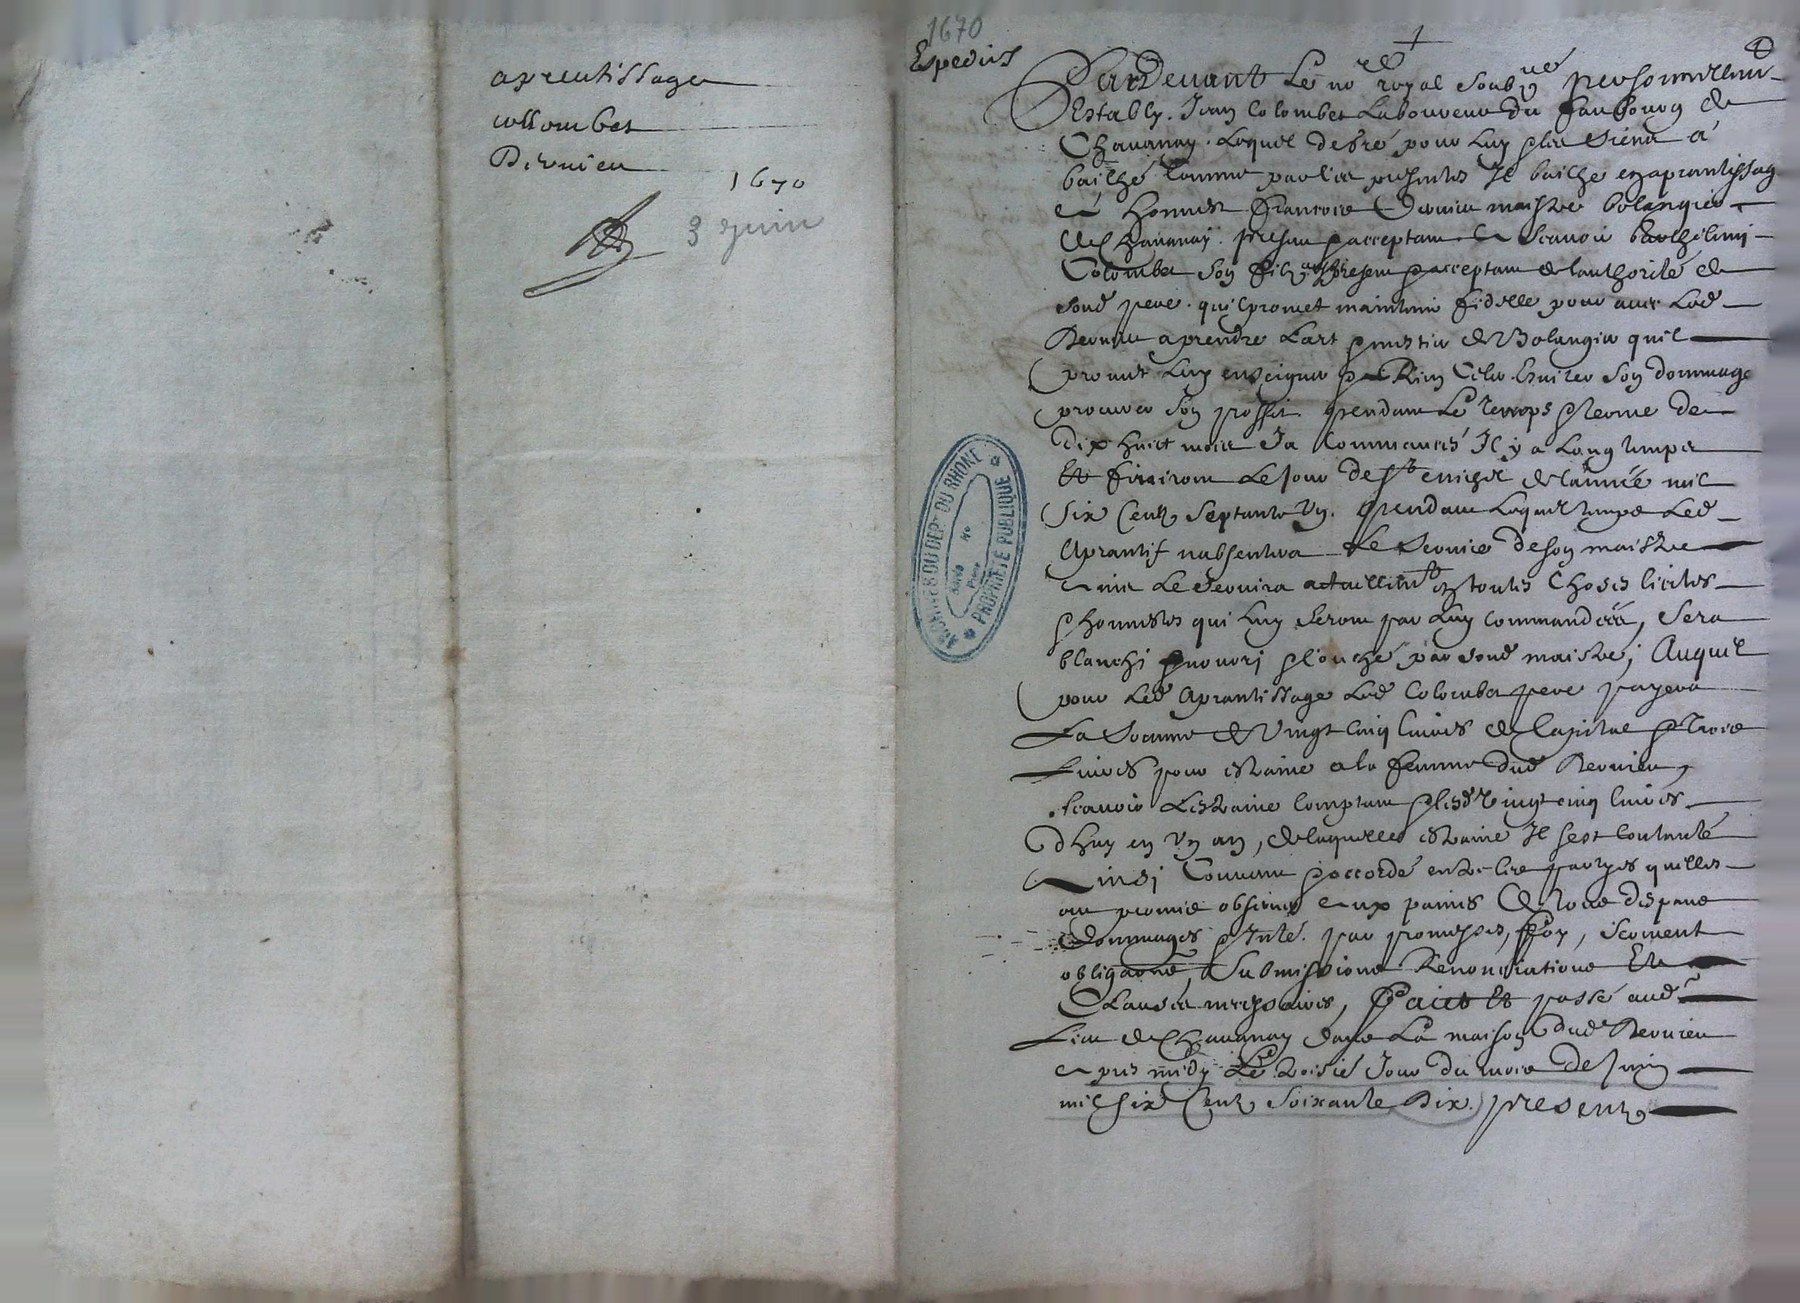 aprentissage
collombet
Dervieu
1670
3 Juin
1670
Expediés
Pardevant Le no.re royal soub.né personnellem.t
Estably. Jean Colombet Laboureur du faubourg de
Chavanay. Lequel de gré pour luy & les siens a
baillé comme par ces presentes Il baille en aprantissage
a honneste francois Dervieu maistre bolangier
de Chavanay. present & acceptant scavoir barthelemi
Colombet son fils aussy present & acceptant de lauthorité de
sond pere. quil promet maintenir fidelle pour avec led
Dervieu aprendre Lart & mestier de Bolangier quil
promet luy enseigner & Rien celer. Esviter son dommage
procurer son proffit. pendant Le temps & terme de
dix huict mois Ja commancés Il y a Long temps
Et finiront Le Jour de St michel de lannée mil
six Cents septante Un. pendant Lequel temps Led
Aprantif nabsentera Le service de son maistre
ains Le servira actuellem.t en toutes choses licites
& honnestes qui luy seront par luy commandées, sera
blanchi & nourri & couché par sond maistre; Auquel
pour Led Aprantissage Led Colombet pere payera
La Somme de Vingt cinq livres de Capital & trois
Livres pour estraine a la femme dud Dervieu,
scavoir Lestraine comptant & lesd Vingt cinq livres
dhuy en Un an, de laquelle estraine Il sest contenté
Ainsi Convenu & accordé entre lesd partyes quelles
ont promis observer aux paines de tous despans
dommages & Inte. par promesses, foy, serment
obliga.ons, submissions Renonciations Et
Clauses necessaires, Faict Et passé aud
Lieu de Chavanay dans La maison dud Dervieu
apres midy Le troisie Jour du mois de Juin
mil six Cents soixante Dix. presents
ARCHIVES DU DEPT DU RHONE
PROPRIETE PUBLIQUE